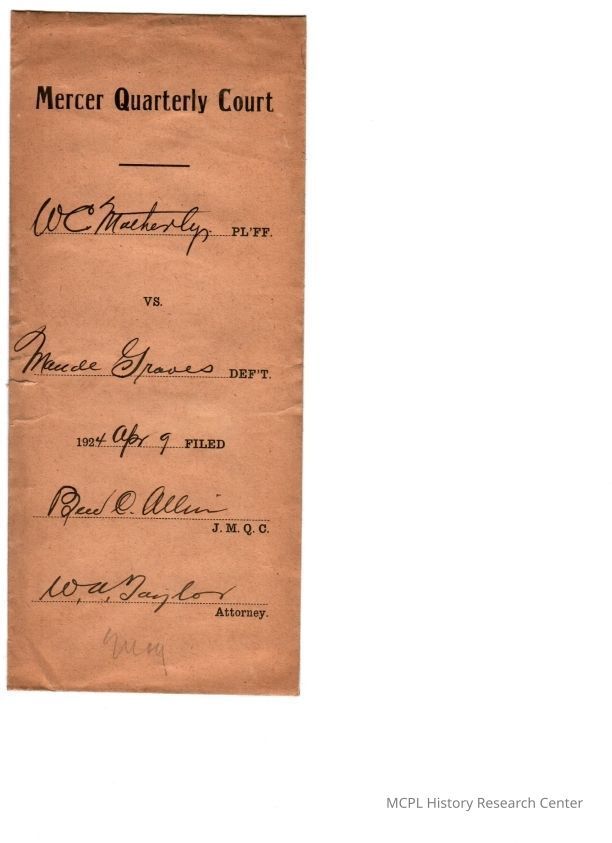 Mercer Quarterly Court
W C Matherly, PL'FF.
VS.
Maude Graves DEF'T.
1924 Apr 9 FILED
Ben C. Allin
J. M. Q. C.
W. A. Taylor
Attorney.
MCPL History Research Center